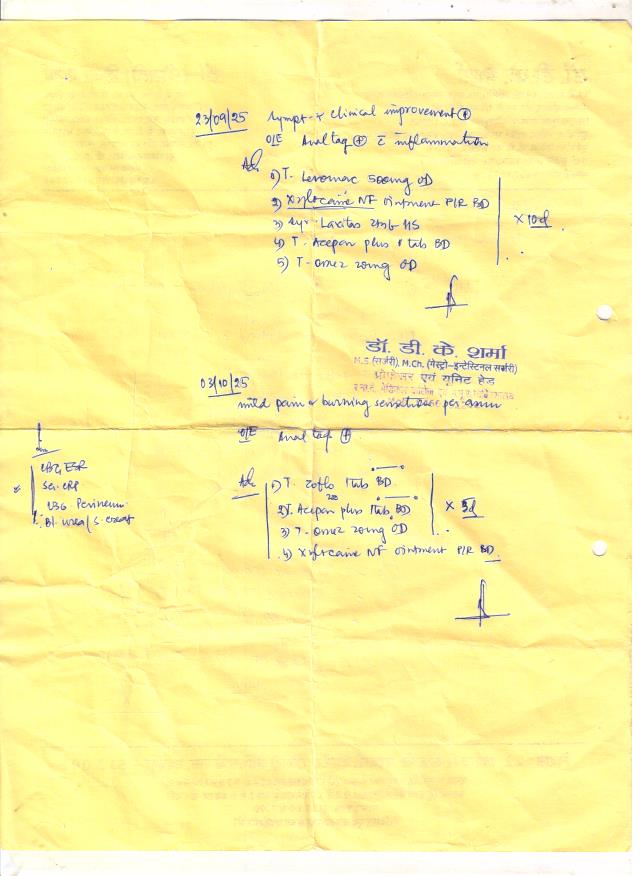 23/09/25 Sympt. & Clinical improvement ⊕
O/E Anal tag ⊕ c̄ inflammation
Adv
1) T. Levomac 500mg OD
2) Xylocaine NF ointment P/R BD
3) Syp. Laxitas HS
4) T. Acepan plus 1 tab BD
5) T. Omez 20mg OD
x 10d
डॉ. डी. के. शर्मा
M.S. (सर्जरी), M.Ch. (गेस्ट्रो-इन्टेस्टिनल सर्जरी)
प्रोफेसर एवं यूनिट हेड
03/10/25
mild pain & burning sensation per anum
O/E Anal tag ⊕
CBC, ESR
Sr. CRP
USG Perineum
Bl. urea / S. creat
Adv 1) T. Zoflo 200 1tab BD
2) T. Acepan plus 1tab BD
3) T. Omez 20mg OD
4) Xylocaine NF ointment P/R BD
x 5d